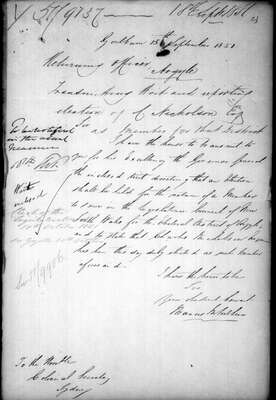 51/9137
18 Sept 1851
Goulburn 15th September 1851
Returning Officer
Argyle
Transmitting Writ and reporting
election of C Nicholson Esq
as Member for that District
I have the honor to transmit to
you for his Excellency the Governor General
the enclosed Writ directing that an Election
shall be held for the return of a Member
to serve in the Legislative Council of New
South Wales for the Electoral District of Argyle,
and to state that Charles Nicholson Esquire
has been this day duly elected as such Member
I have the honor to be
Sir
Your obedient Servant
To be notified
in the usual
manner
Writ
enclosed
51/9906
To the Honble
Colonial Secretary
Sydney